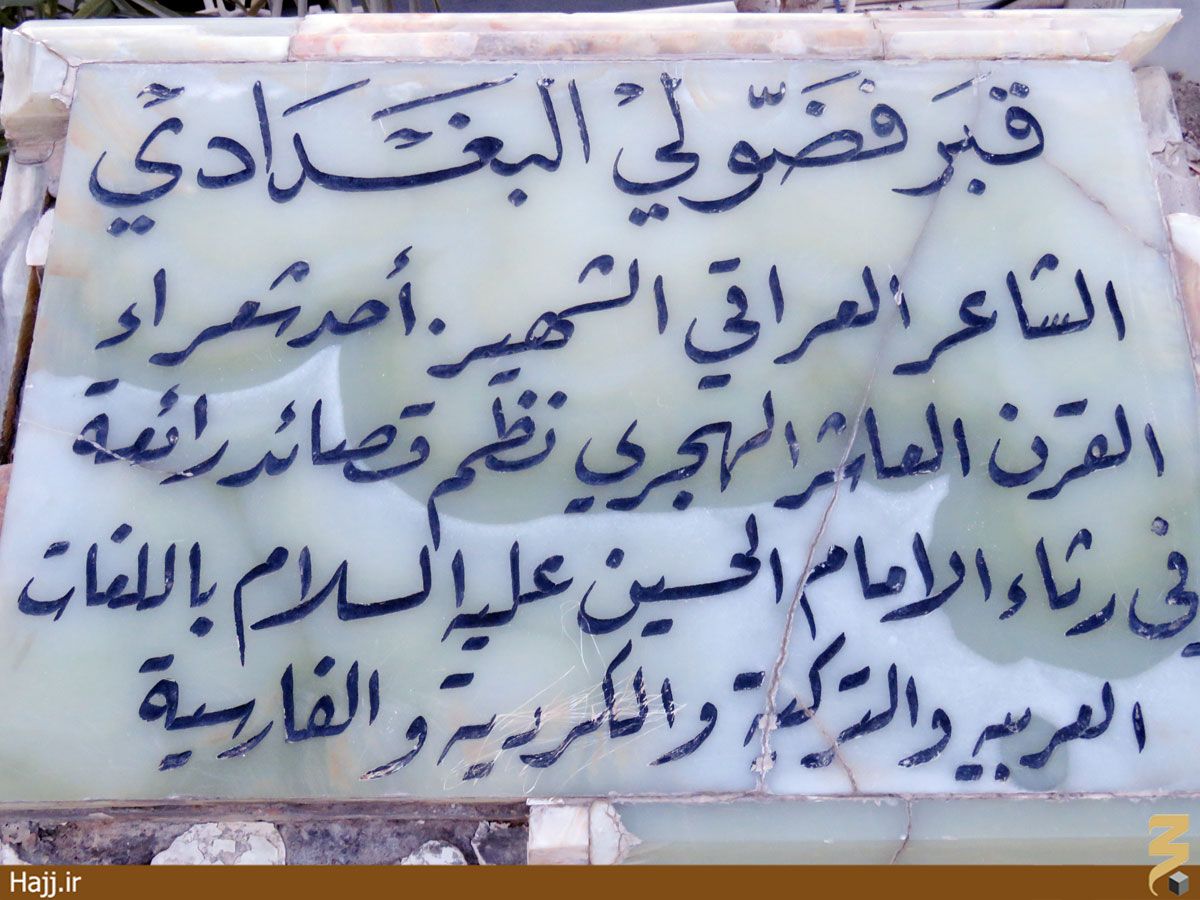 قبر فضولي البغدادي
الشاعر العراقي الشهير. أحد شعراء
القرن العاشر الهجري نظم قصائد رائعة
في رثاء الامام الحسين عليه السلام باللغات
العربيه والتركية والكردية والفارسية
Hajj.ir